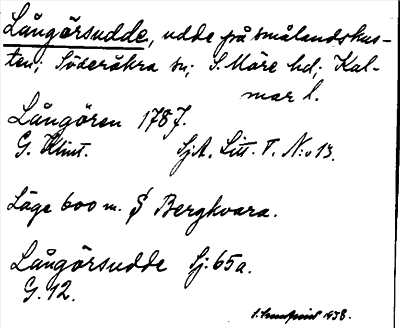 Långörsudde, udde på smålandskus-
ten; Söderåkra sn; S. Möre hd; Kal-
mar l.
Långören 1787.
G. Klint. SjA. Litt. T. N:o 13.
Läge 600 m. S Bergkvara.
Långörsudde Sj: 65a.
G. 12.
1938.